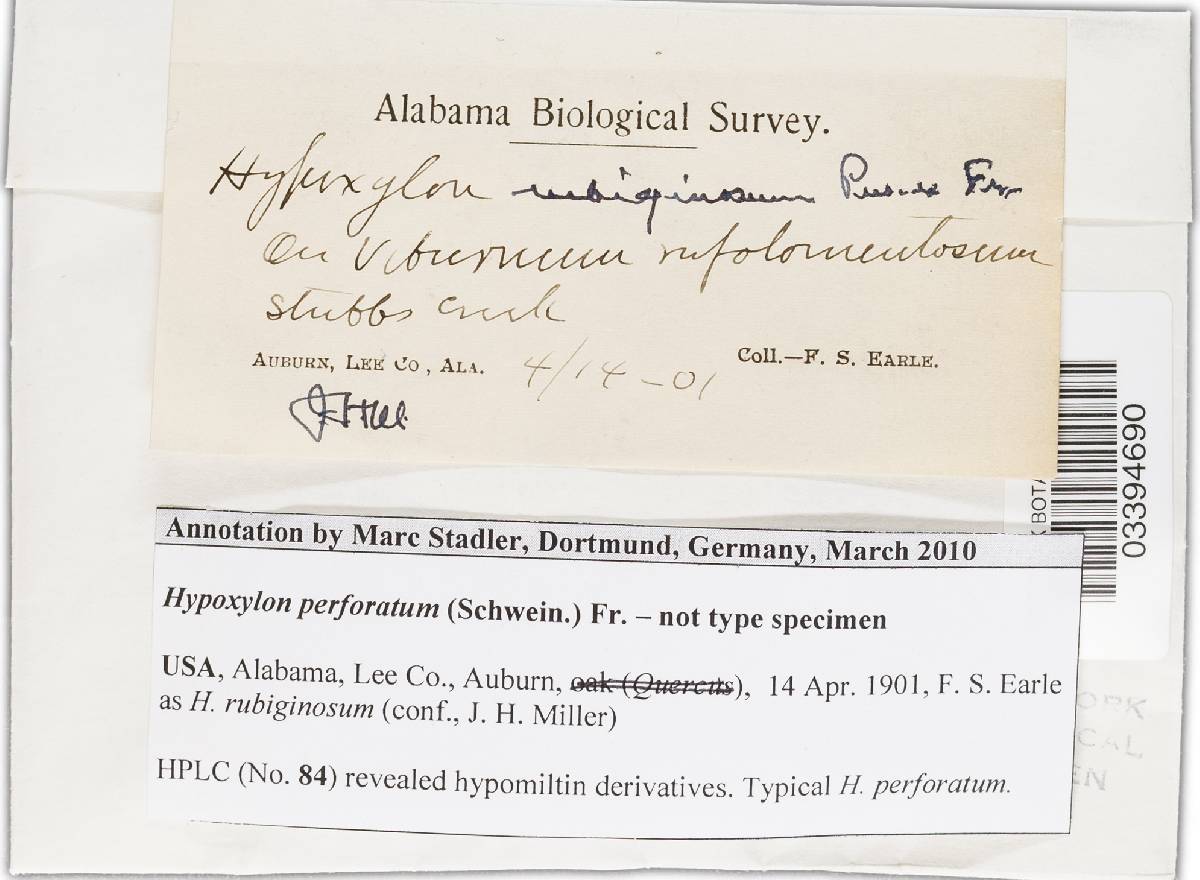 Alabama Biological Survey.
Hypoxylon rubiginosum Pers. ex Fr.
On Viburnum rufotomentosum
Stubbs Creek
AUBURN, LEE CO, ALA. 4/14-01 Coll.—F. S. EARLE.
JHM
03394690
BOTA
Annotation by Marc Stadler, Dortmund, Germany, March 2010
Hypoxylon perforatum (Schwein.) Fr. – not type specimen
USA, Alabama, Lee Co., Auburn, oak (Quercus), 14 Apr. 1901, F. S. Earle
as H. rubiginosum (conf., J. H. Miller)
HPLC (No. 84) revealed hypomiltin derivatives. Typical H. perforatum.
ORK
CAL
EN